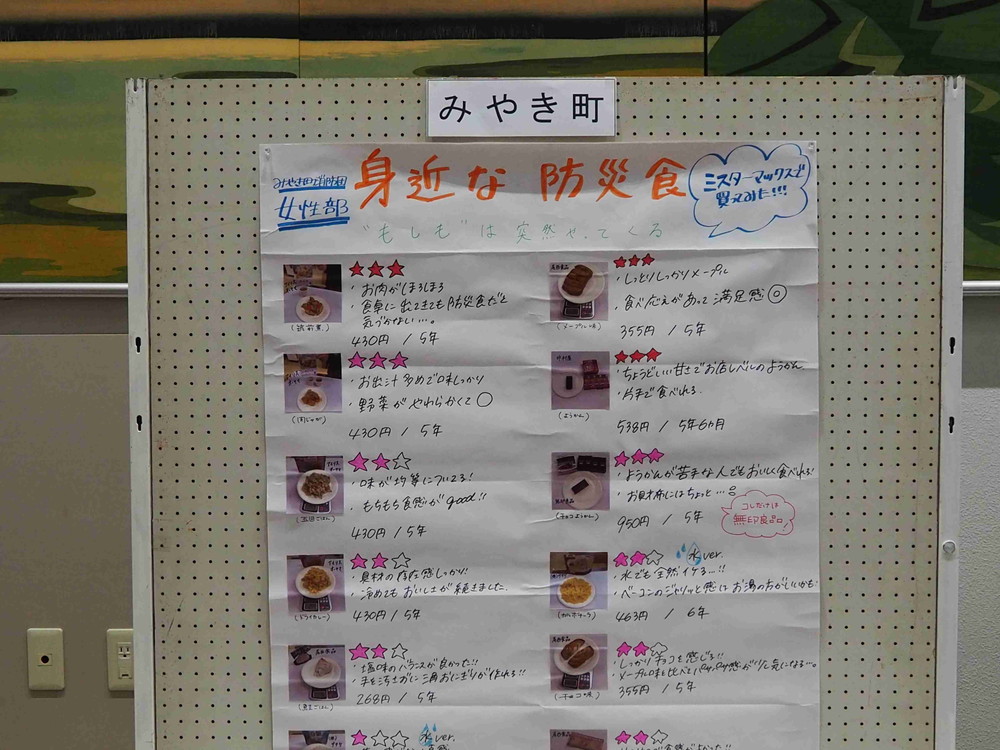 みやき町
みやき町消防団
女性部
身近な 防災食
ミスターマックスで
買ってみた!!!
"もしも"は突然やってくる
★★★
・お肉がほろほろ
・食卓に出てきても防災食だと
気づかない…。
(筑前煮)
430円 / 5年
★★★
・お出汁多めで味しっかり
・野菜がやわらかくて◯
(肉じゃが)
430円 / 5年
★★☆
・味が均等についてる!
・もちもち食感がgood!!
(五目ごはん)
430円 / 5年
★★☆
・具材の存在感しっかり!
・冷めてもおいしさが続きました。
(ドライカレー)
430円 / 5年
★★☆
・塩味のバランスが良かった!!
・手を汚さずに三角おにぎりが作れる!!
268円 / 5年
★☆☆
水ver.
★★★
・しっとりしっかりメープル
・食べ応えがあって満足感◎
(メープル味)
355円 / 5年
★★★
・ちょうどいい甘さでお店レベルのようかん
・片手で食べれる
(ようかん)
538円 / 5年6か月
★★★
・ようかんが苦手な人でもおいしく食べれる!
・お財布にはちょっと…
(チョコようかん)
950円 / 5年
コレだけは
無印良品
★★☆ 水ver.
・水でも全然イケる…!!
・ベーコンのジャリッと感はお湯の方がいいかも
(カルボナーラ)
463円 / 6年
★★☆
・しっかりチョコを感じる!!
(チョコ味)
355円 / 5年
★★☆